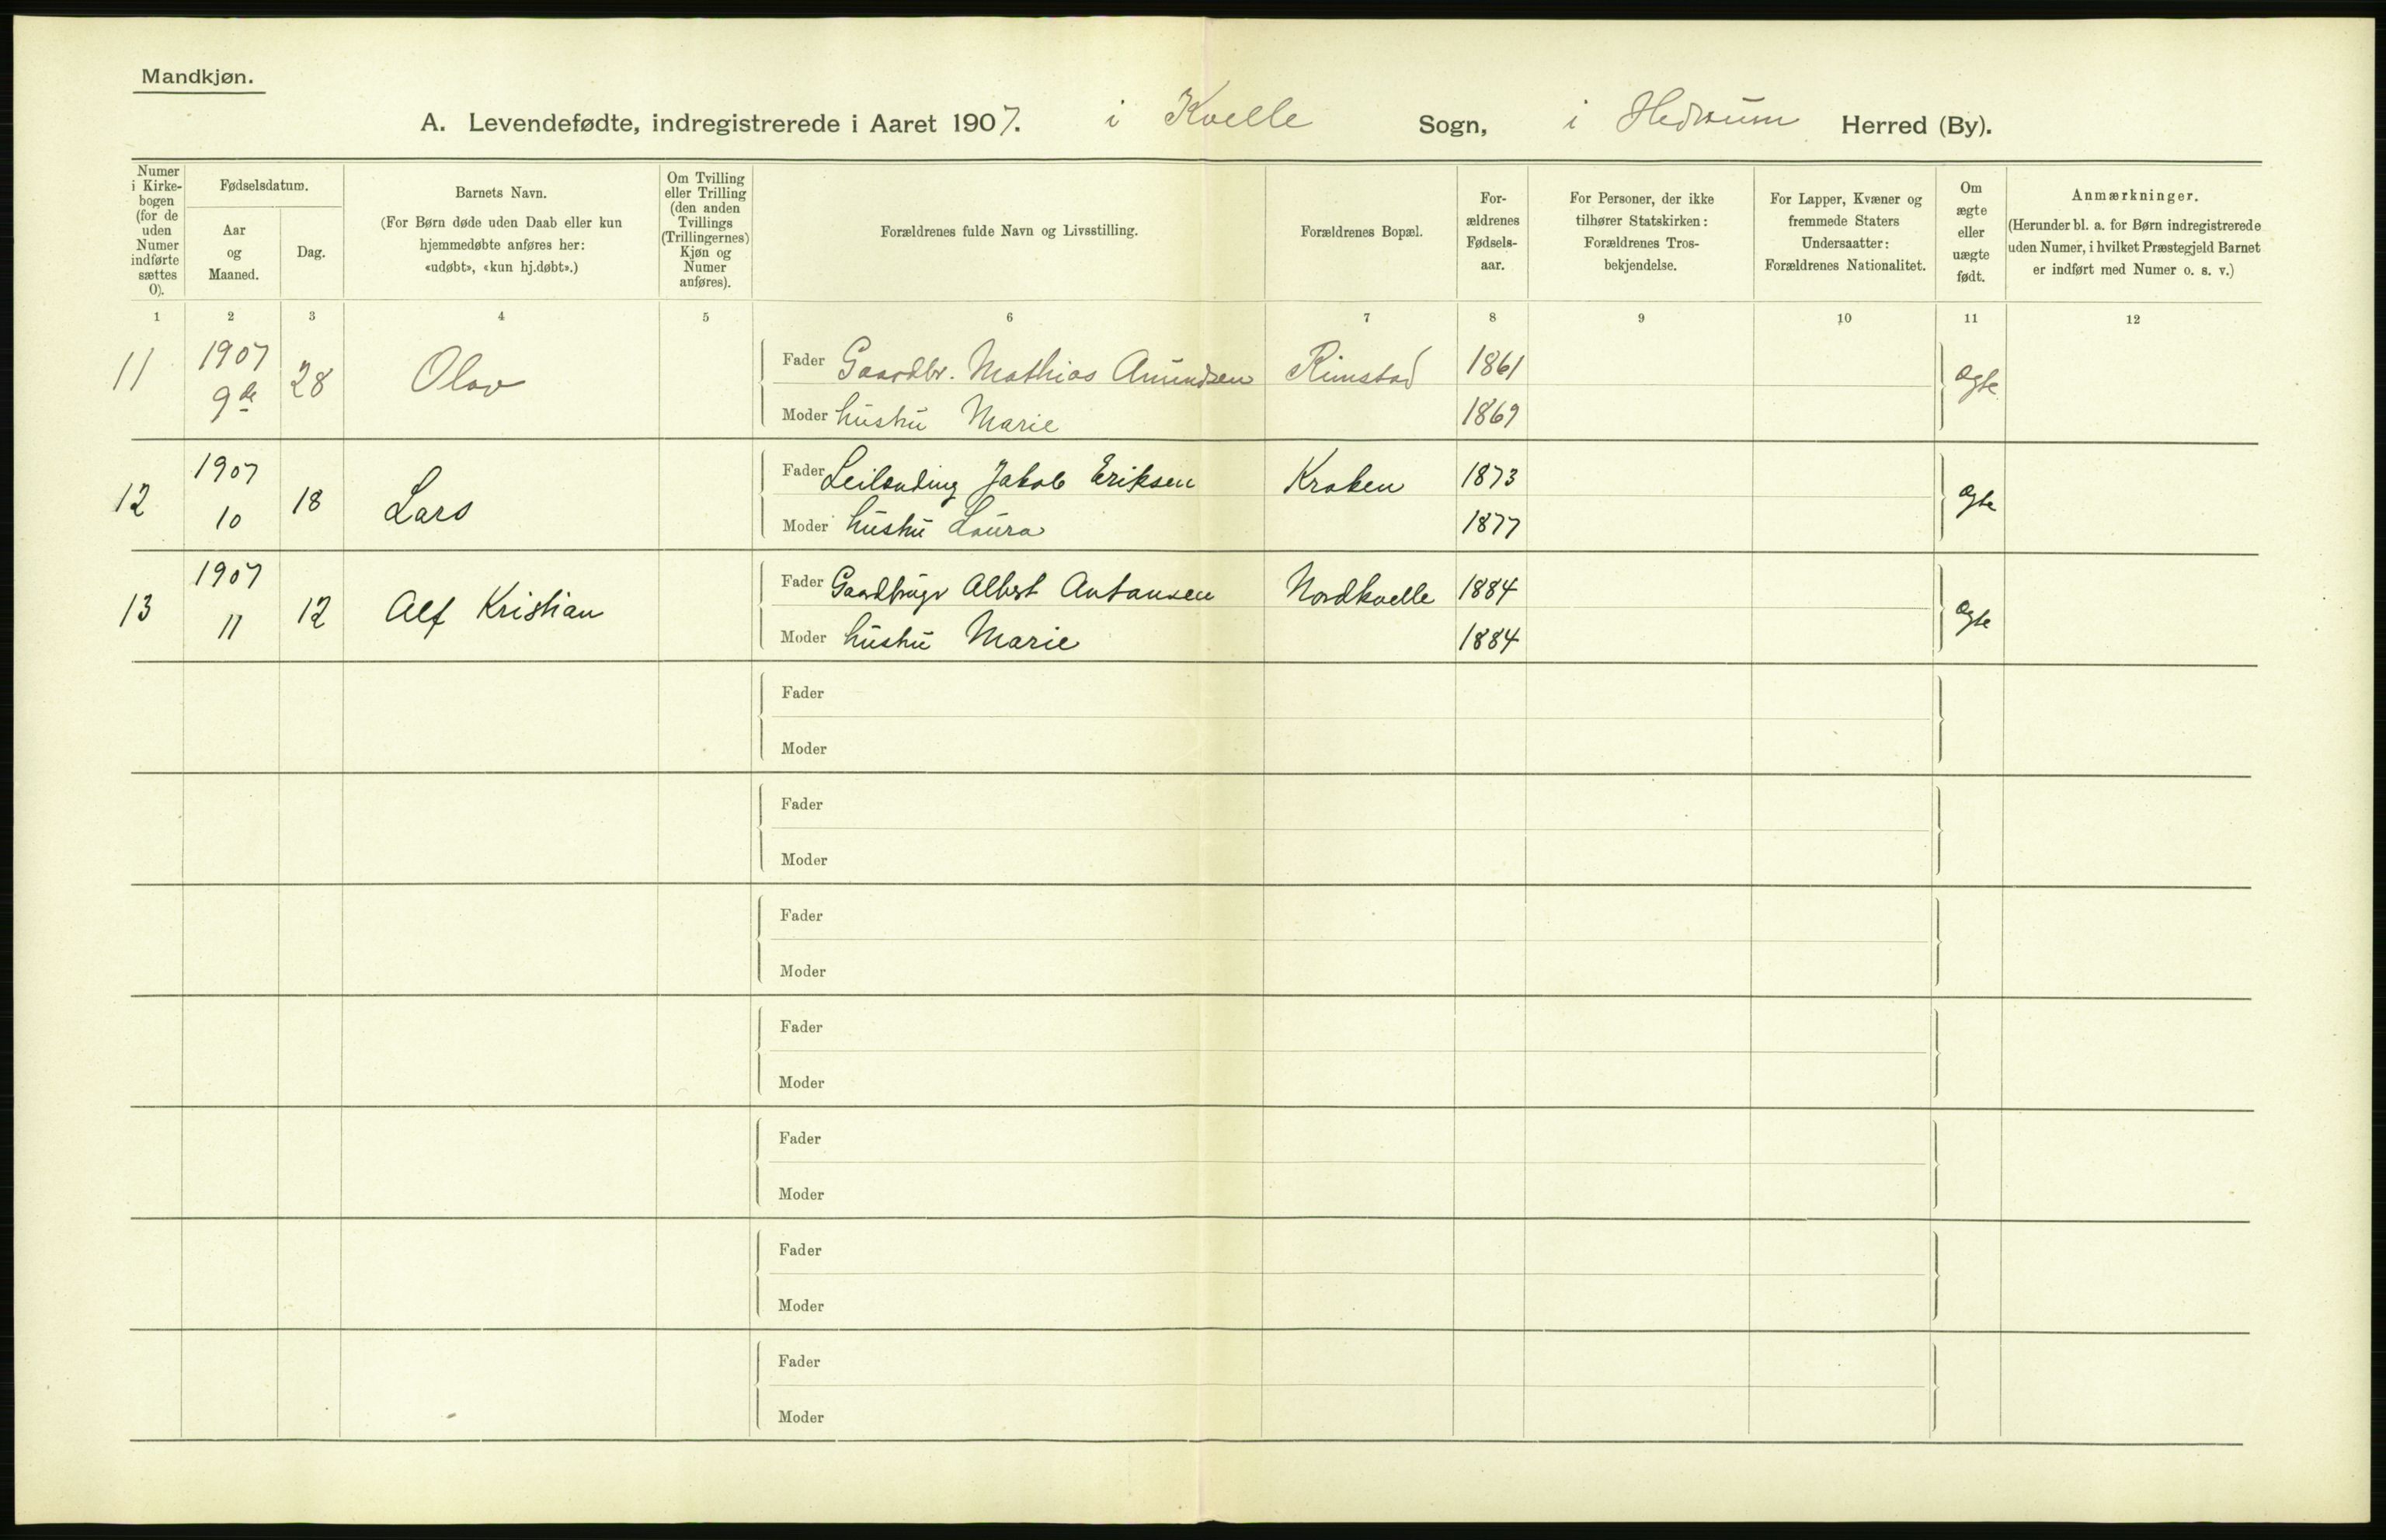 Mandkjøn.
A. Levendefødte, indregistrerede i Aaret 1907. i Kvelle Sogn, i Hedrum Herred (By).
Numer
i Kirke-
bogen
(for de
uden
Numer
indførte
sættes
0).
Fødselsdatum.
Aar
og
Maaned.
Dag.
Barnets Navn.
(For Børn døde uden Daab eller kun
hjemmedøbte anføres her:
«udøbt», «kun hj.døbt».)
Om Tvilling
eller Trilling
(den anden
Tvillings
(Trillingernes)
Kjøn og
Numer
anføres).
Forældrenes fulde Navn og Livsstilling.
Forældrenes Bopæl.
For-
ældrenes
Fødsels-
aar.
For Personer, der ikke
tilhører Statskirken:
Forældrenes Tros-
bekjendelse.
For Lapper, Kvæner og
fremmede Staters
Undersaatter:
Forældrenes Nationalitet.
Om
ægte
eller
uægte
født.
Anmærkninger.
(Herunder bl. a. for Børn indregistrerede
uden Numer, i hvilket Præstegjeld Barnet
er indført med Numer o. s. v.)
1 2 3 4 5 6 7 8 9 10 11 12
11 1907 9de 28 Olav Fader Gaardbr. Mathias Amundsen Rimstad 1861 ægte
Moder hustru Marie 1869
12 1907 10 18 Lars Fader Leilending Jakob Eriksen Kraken 1873 ægte
Moder hustru Laura 1877
13 1907 11 12 Alf Kristian Fader Gaardbruger Albert Antonsen Nordkvelle 1884 ægte
Moder hustru Marie 1884
Fader
Moder
Fader
Moder
Fader
Moder
Fader
Moder
Fader
Moder
Fader
Moder
Fader
Moder